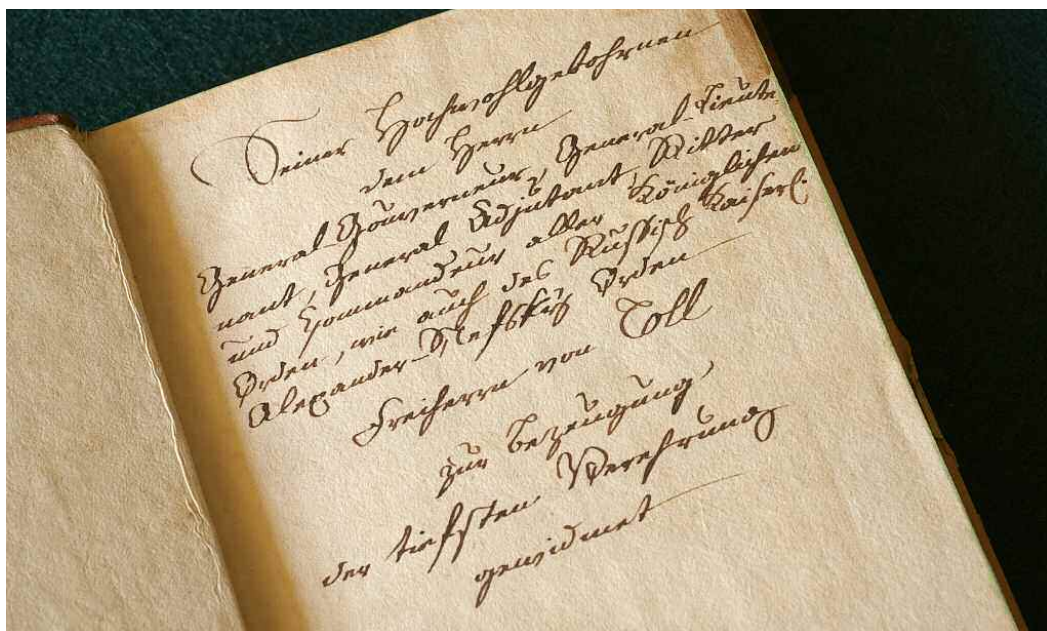 Seiner Hochwohlgebohrnen
dem Herrn
General-Gouverneur, General-Lieute
nant, General Adjutant, Ritter
und Commandeur aller Königlichen
Orden, wie auch des Russisch Kaiserl.
Alexander-Nefskÿ Orden
Freiherrn von Toll
zur Bezeugung
der tiefsten Verehrung
gewidmet